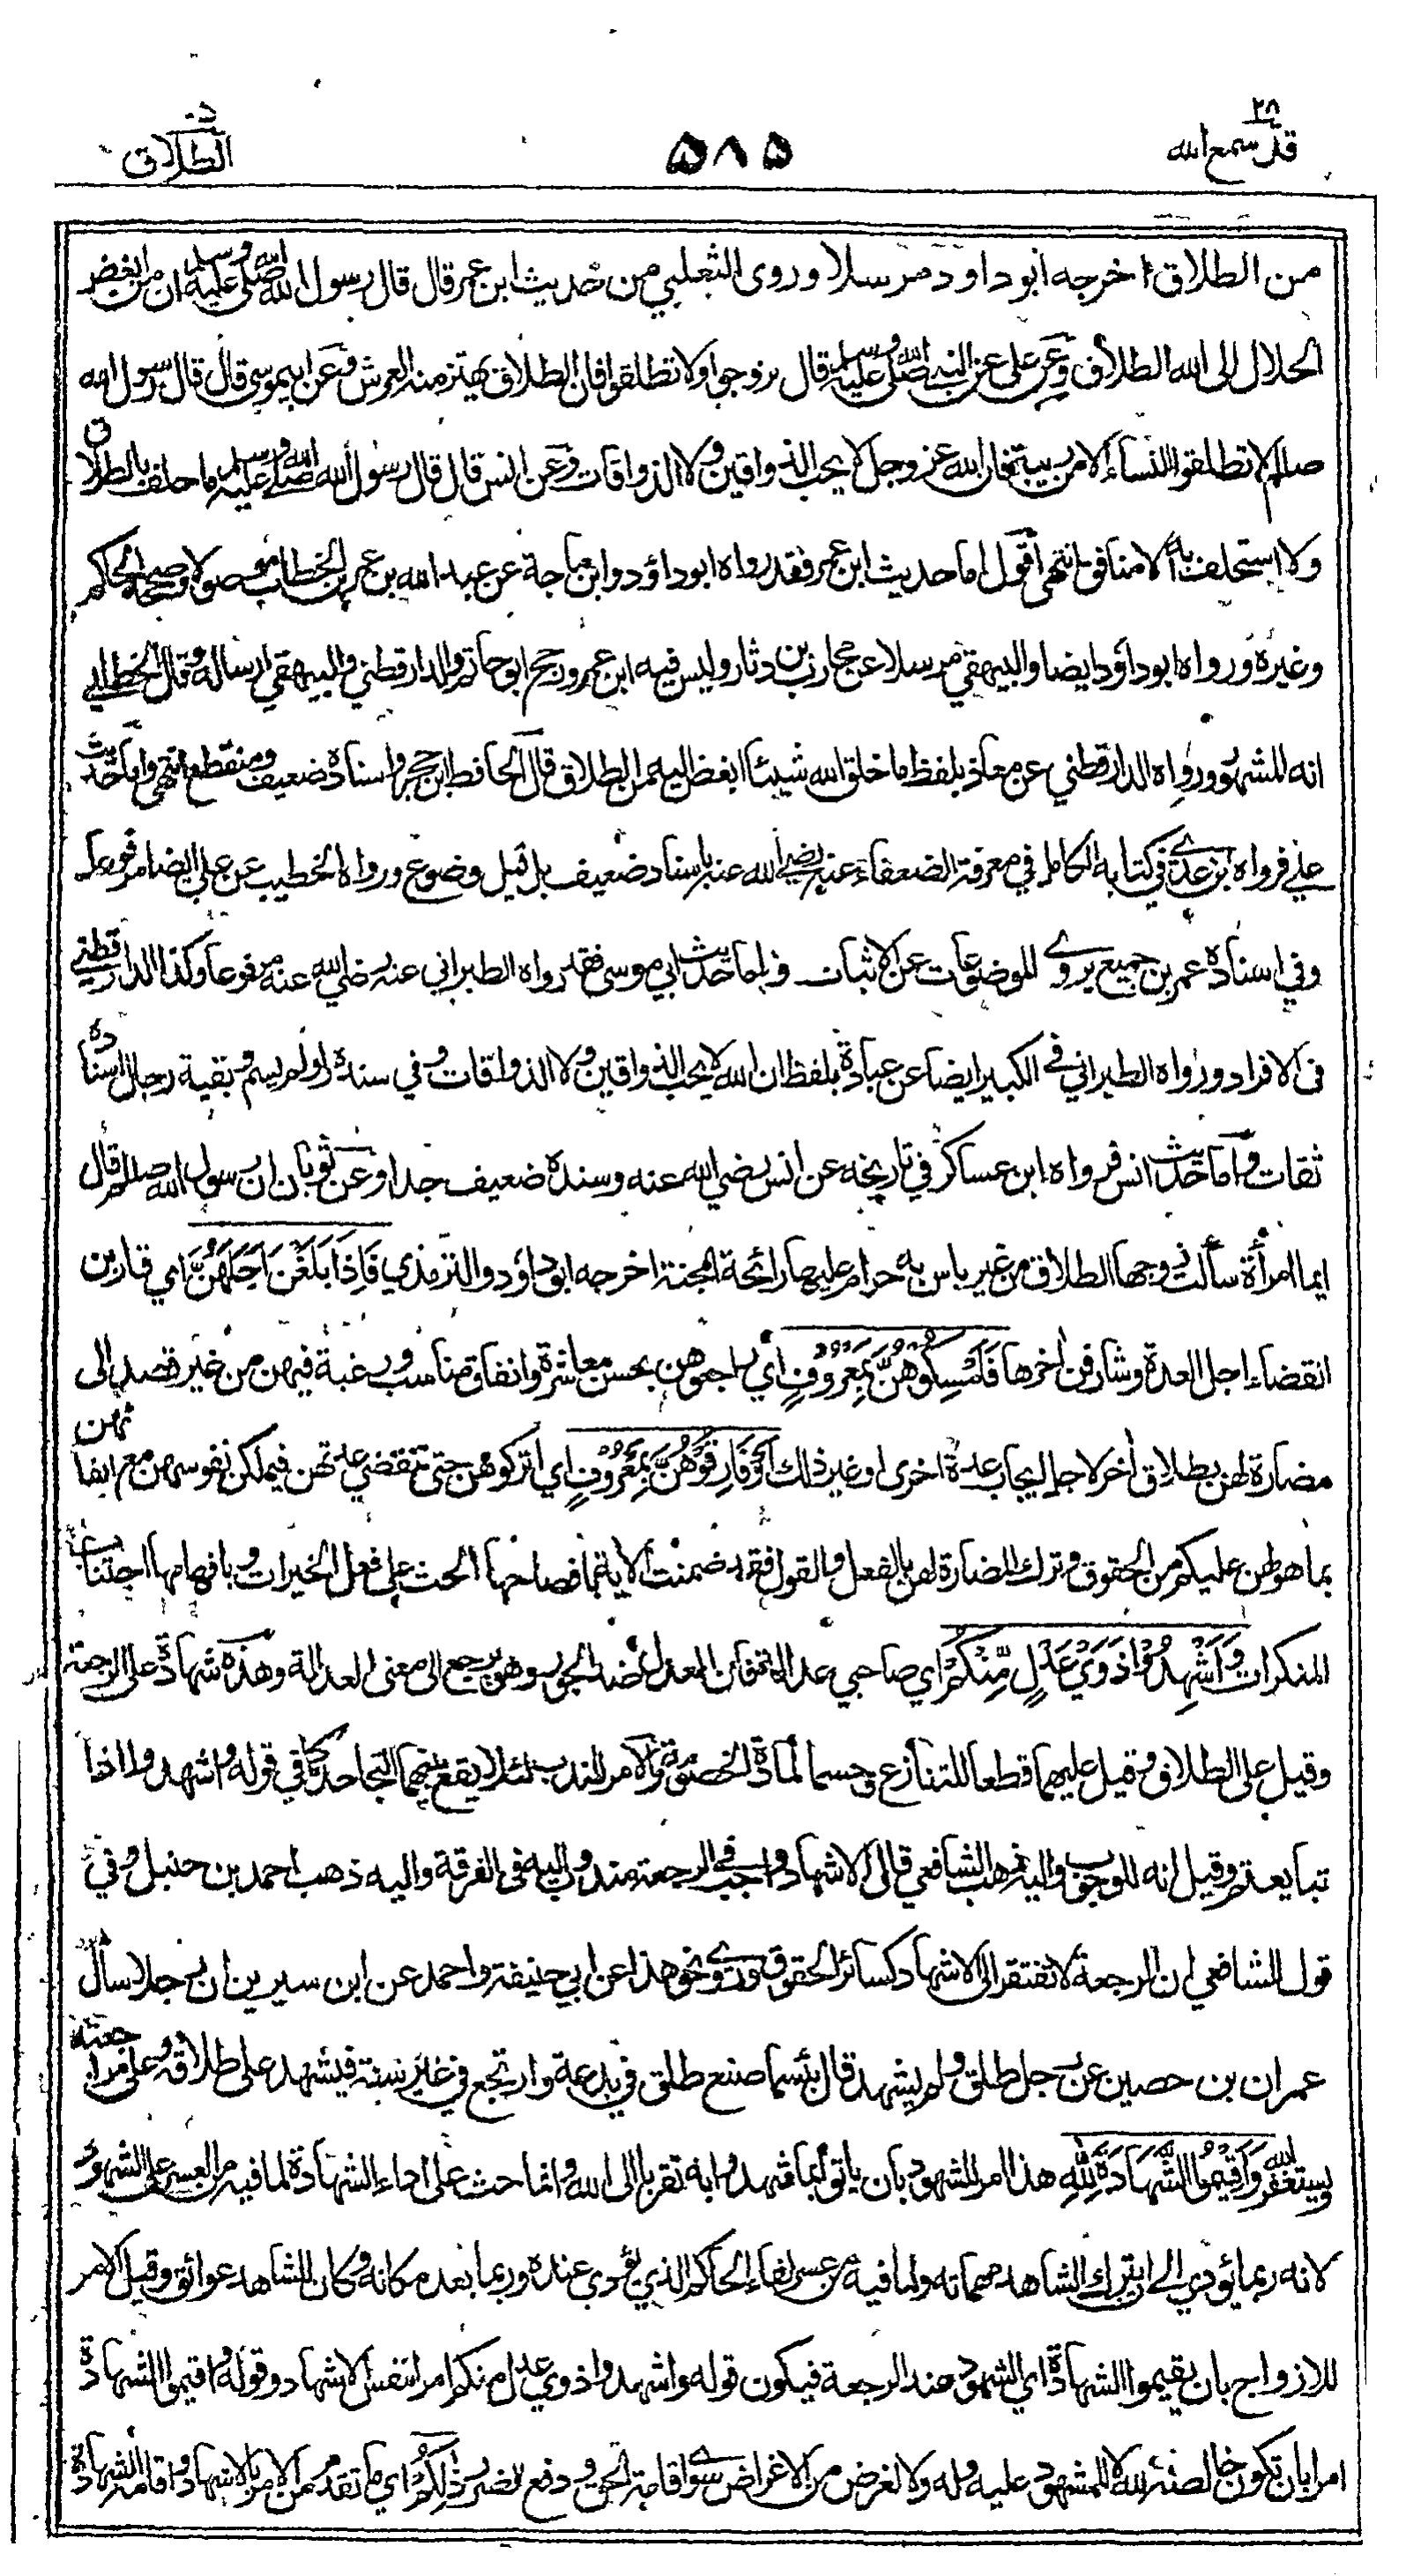 ٢٨
قد سمع الله
٥٨٥
الطلاق
من الطلاق اخرجه ابو داود مرسلا وروى الثعلبي من حديث ابن عمر قال قال رسول الله صلى الله عليه وسلم ان من ابغض
الحلال الى الله الطلاق وعن علي عن النبي صلى الله عليه وسلم قال تزوجوا ولا تطلقوا فان الطلاق يهتز منه العرش وعن ابي موسى قال قال رسول الله
صللم لا تطلقوا النساء الا من ريبة فان الله عز وجل لا يحب الذواقين ولا الذواقات وعن انس قال قال رسول الله صلى الله عليه وسلم ما حلف بالطلاق
ولا استحلف به الا منافق انتهى اقول اما حديث ابن عمر فقد رواه ابو داؤد وابن ماجة عن عبد الله بن عمر بن الخطاب موصولا وصححه الحاكم
وغيره ورواه ابو داؤد ايضا والبيهقي مرسلا عن محارب بن دثار وليس فيه ابن عمر ورجح ابو حاتم والدارقطني والبيهقي ارساله وقال الخطابي
انه المشهور ورواه الدارقطني عن معاذ بلفظ ما خلق الله شيئا ابغض اليه من الطلاق قال الحافظ ابن حجر واسناده ضعيف ومنقطع انتهى واما حديث
علي فرواه ابن عدي في كتابه الكامل في معرفة الضعفاء عنه رضي الله عنه باسناد ضعيف بل قيل موضوع ورواه الخطيب عن علي ايضا مرفوعا
وفي اسناده عمر بن جميع يروي الموضوعات عن الاثبات واما حديث ابي موسى فقد رواه الطبراني عنه رضي الله عنه مرفوعا وكذا الدارقطني
في الافراد ورواه الطبراني في الكبير ايضا عن عبادة بلفظ ان الله لا يحب الذواقين ولا الذواقات وفي سنده راو لم يسم وبقية رجال اسناده
ثقات واما حديث انس فرواه ابن عساكر في تاريخه عن انس رضي الله عنه وسنده ضعيف جدا وعن ثوبان ان رسول الله صللم قال
ايما امرأة سألت زوجها الطلاق من غير باس به حرام عليها رائحة الجنة اخرجه ابو داؤد والترمذي فَاِذَا بَلَغْنَ اَجَلَهُنَّ اي قاربن
انقضاء اجل العدة وشارفن اخرها فَاَمْسِكُوْهُنَّ بِمَعْرُوْفٍ اي راجعوهن بحسن معاشرة وانفاق مناسب ورغبة فيهن من غير قصد الى
مضارة لهن بطلاق اخر لاجل ايجاب عدة اخرى او غير ذلك اَوْ فَارِقُوْهُنَّ بِمَعْرُوْفٍ اي اتركوهن حتى تنقضي عدتهن فيملكن نفوسهن مع ايفائهن
بما هو لهن عليكم من الحقوق وترك المضارة لهن بالفعل والقول فقد ضمنت الاية بافصاحها الحث على فعل الخيرات وبافهامها اجتناب
المنكرات وَاَشْهِدُوْا ذَوَيْ عَدْلٍ مِّنْكُمْ اي صاحبي عدالة فان العدل ضد الجور وهو يرجع الى معنى العدالة وهذه شهادة على الرجعة
وقيل على الطلاق وقيل عليهما قطعا للتنازع وحسما لمادة الخصومة والامر للندب لئلا يقع بينهما التجاحد كما في قوله واشهدوا اذا
تبايعتم وقيل انه للوجوب واليه ذهب الشافعي قال الاشهاد واجب في الرجعة مندوب اليه في الفرقة واليه ذهب احمد بن حنبل وفي
قول للشافعي ان الرجعة لا تفتقر الى الاشهاد كسائر الحقوق وروي نحو هذا عن ابي حنيفة واحمد عن ابن سيرين ان رجلا سأل
عمران بن حصين عن رجل طلق ولم يشهد قال بئسما صنع طلق في بدعة وارتجع في غير سنة فيشهد على طلاقه وعلى مراجعته
ويستغفر الله وَاَقِيْمُوا الشَّهَادَةَ لِلّٰهِ هذا امر للشهود بان ياتوا بما شهدوا به تقربا الى الله وانما حث على اداء الشهادة لما فيه من العسر على الشهود
لانه ربما يؤدي الى ان يترك الشاهد مهماته ولما فيه من عسر لقاء الحاكم الذي يؤدي عنده وربما بعد مكانه وكان للشاهد عوائق وقيل الامر
للازواج بان يقيموا الشهادة اي الشهود عند الرجعة فيكون قوله واشهدوا ذوي عدل منكم امرا بنفس الاشهاد وقوله واقيموا الشهادة
امرا بان تكون خالصة لله لا للمشهود عليه وله ولا لغرض من الاغراض سوى اقامة الحق ودفع الضرر ذٰلِكُمْ اي ما تقدم من الامر بالاشهاد واقامة الشهادة